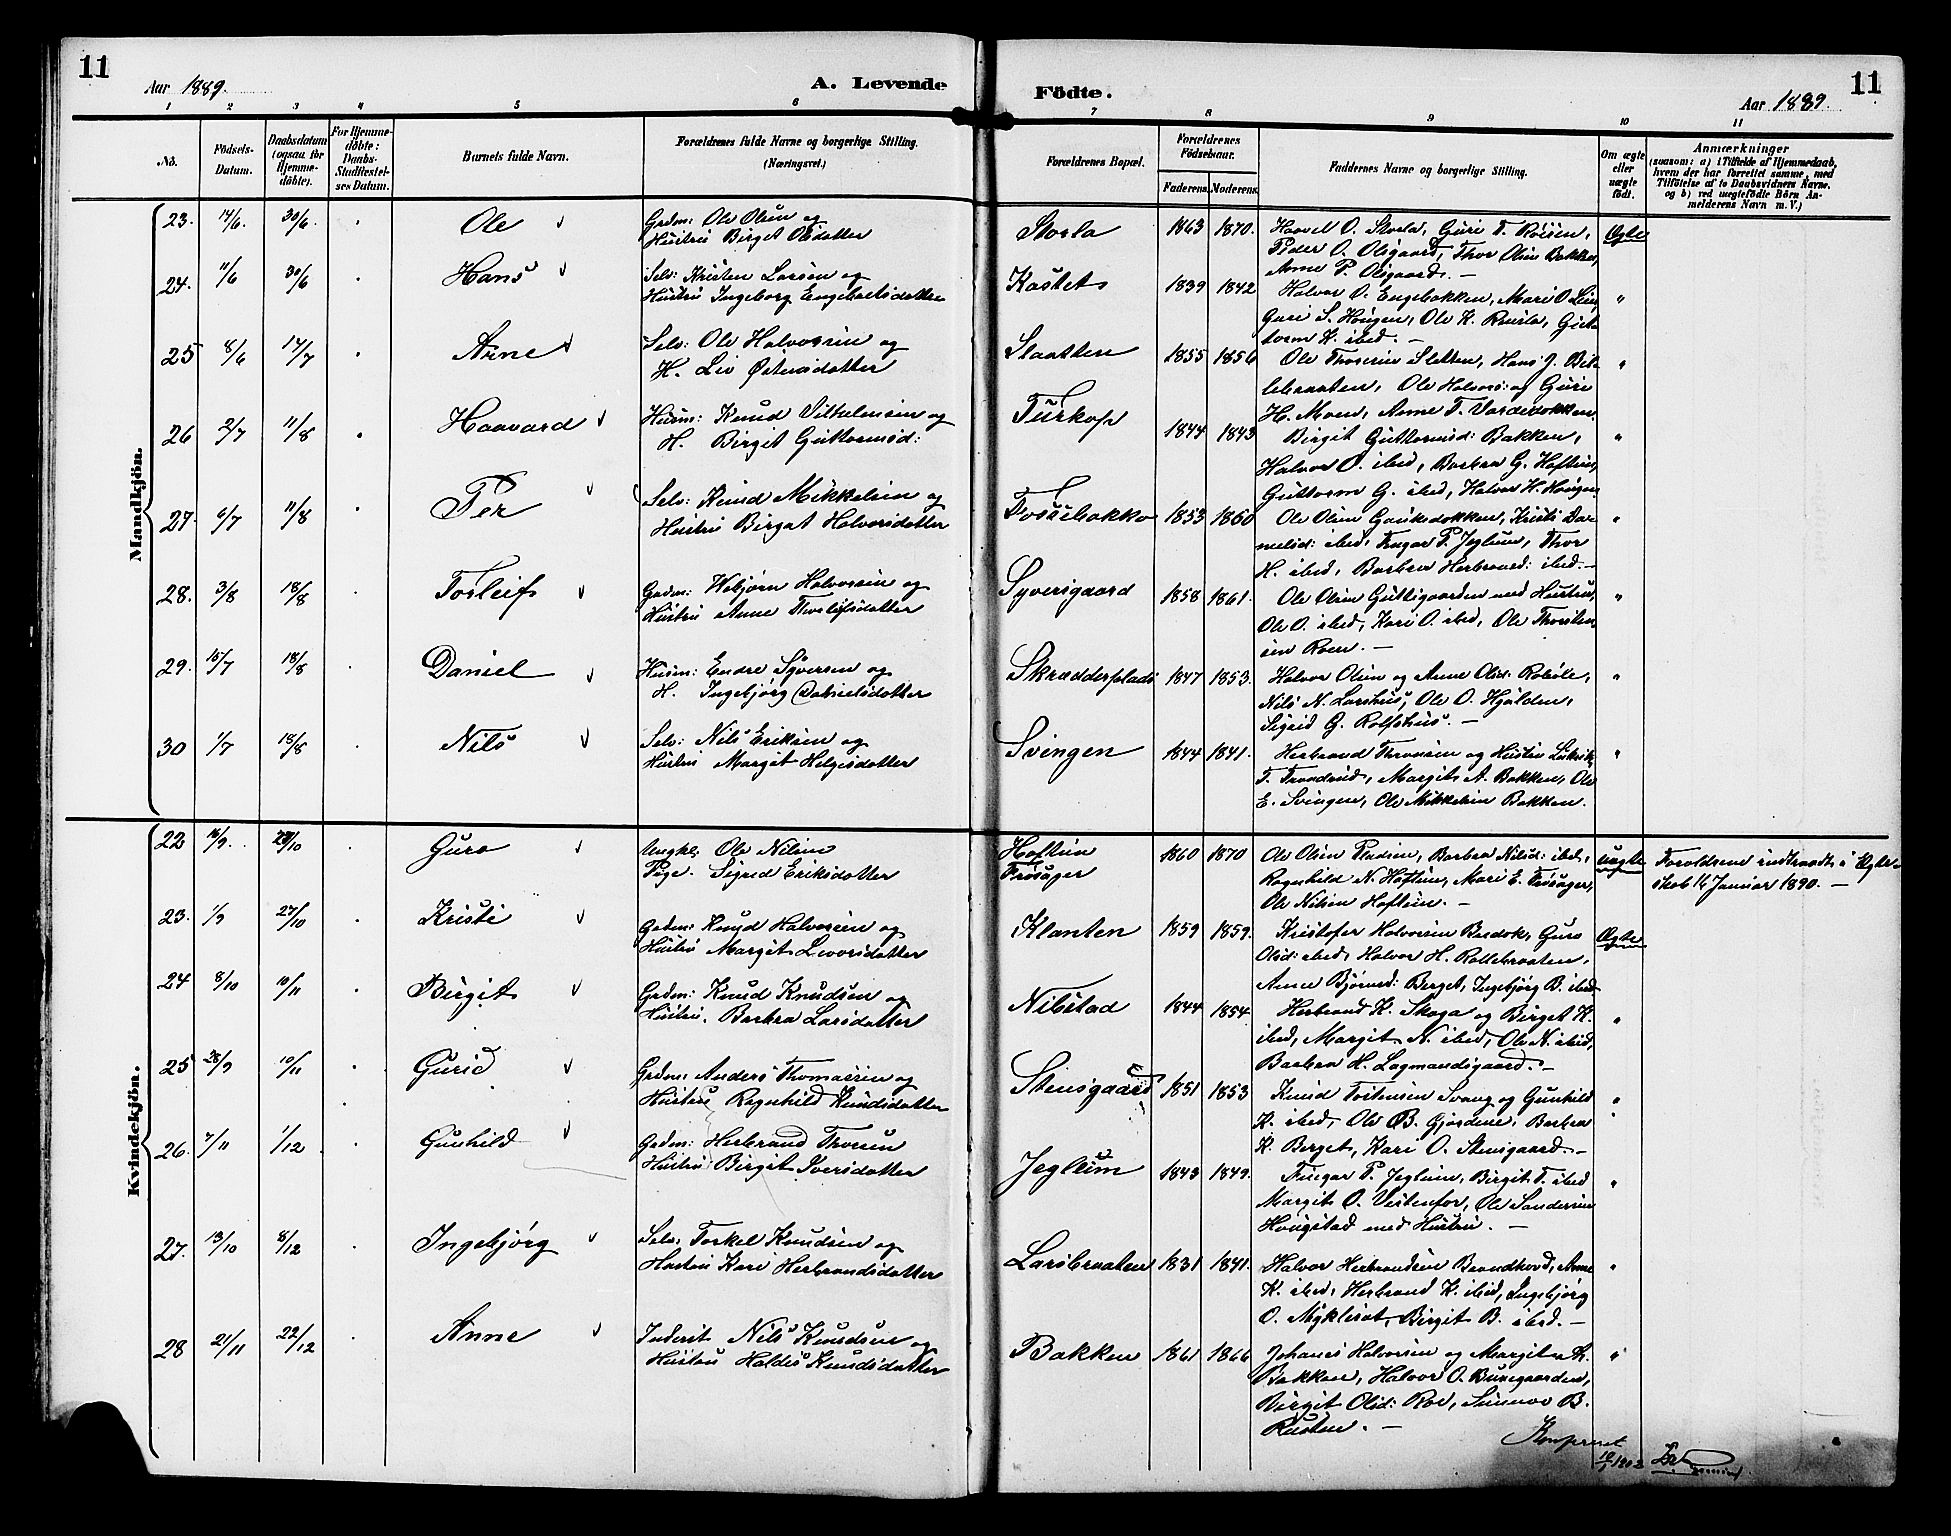 11
Aar 1889.
A. Levende
Födte.
11
Aar 1889.
1 2 3 4 5 6 7 8 9 10 11
No. Födsels-Datum. Daabsdatum (ogsaa for Hjemme-döbte). For Hjemme-döbte: Daabs-Stadfæstel-ses Datum. Barnets fulde Navn. Forældrenes fulde Navne og borgerlige Stilling. (Næringsvei.)
Forældrenes Bopæl. Forældrenes Födselsaar. Faderens. Moderens. Faddernes Navne og borgerlige Stilling. Om ægte eller uægte födt. Anmærkninger (saasom: a) i Tilfælde af Hjemmedaab, hvem der har forrettet samme, med Tilföielse af to Daabsvidners Navne, og b) ved uegtefödte Börn An-melderens Navn m. V.)
Mandkjön.
23. 14/6. 30/6. Ole Grdm: Ole Olsen og
Hustru Birget Olsdatter
Storla 1863 1870. Haavel O. Storla, Guri T. Roisen,
Peder O. Olsgaard, Thor Olsen Bakken,
Anne P. Olsgaard. —
Ægte
24. 11/6 30/6 Hans Selv: Kristen Larsen og
Hustru Ingeborg Engebretsdatter
Kastet 1839 1842 Halvor O. Engebakken, Mari O. Lein
Guri S. Hougen, Ole K. Rousla, Gut-
torm K. ibed. — "
25 8/6 14/7 Arne Selv: Ole Halvorsen og
H. Liv Østensdatter
Slaatten 1855 1856 Ole Thoresen Sletten, Hans J. Bil-
lebraaten, Ole Halvors: og Guri
H. Moen, Anne T. Vardedokken "
26 2/7 11/8 Haavard Husm: Knud Vilhelmsen og
H. Birgit Guttormsd:
Turkop 1844 1843 Birgit Guttormsd: Bakken,
Halvor O. ibed, Barbra G. Hoftun,
Guttorm G. ibed, Halvor H. Hougen "
27. 6/7 11/8 Per Selv: Knud Mikkelsen og
Hustru Birgit Halvorsdatter
Fossebakko 1853 1860 Ole Olsen Gaukedokken, Kristi Da-
nielsd: ibed, Fingar P. Jeglum, Thor
H. ibed, Barbra Herbrandsd: ibed. — "
28. 3/8 18/8 Torleif Grdm: Vebjørn Halvorsen og
Hustru Anne Thorleifsdatter
Syversgaard 1858 1861. Ole Olsen Guttsgaarden med Hustru,
Ole O. ibed, Kari O. ibed, Ole Thorsten
sen Roen. — "
29. 15/7 18/8 Daniel Husm: Endre Syversen og
H. Ingebjørg Danielsdatter
Skrædderplads 1847 1853. Halvor Olsen og Anne Olsd: Roböle,
Nils N. Larshus, Ole O. Hjalden,
Sigrid G. Rolfshus. — "
30 1/7 18/8 Nils Selv: Nils Eriksen og
Hustru Margit Helgesdatter
Svingen 1844 1841. Herbrand Thronsen og Hustru
T. Trondrud, Margit A. Bakken, Ole
E. Svingen, Ole Mikkelsen Bakken. "
Kvindekjön.
22 16/9. 20/10 Guro Ungkl. Ole Nilsen
Pige. Sigrid Eriksdatter
Hoftun
Frøsager 1860 1870 Ole Olsen Pladsen, Barbra Nilsd: ibed,
Ragnhild N. Hoftun, Mari E. Frøsager,
Ole Nilsen Hoftun. — uægte Foreldrene indtraadte i Ægte-
skab 14 Januar 1890. —
23. 1/9 27/10 Kristi Grdm: Knud Halvorsen og
Hustru Margit Levorsdatter
Klanten 1859 1859. Kristofer Halvorsen Berdok, Guro
Olsd: ibed, Halvor H. Rollebraaten,
Anne Bjørnsd: Berget, Ingebjørg B. ibed Ægte
24 8/10 10/11 Birgit Grdm: Knud Knudsen og
Hustru. Barbra Larsdatter
Nilsstad 1844 1854. Herbrand K. Skaga og Birget K.
ibed, Margit N. ibed, Ole N. ibid,
Barbra H. Lagmandsgaard. — "
25 28/9 10/11 Gurid Grdm: Anders Thomassen og
Hustru Ragnhild Knudsdatter
Stensgaard 1851 1853 Knud Torkensen Svang og Gunhild
K. ibed, Ole B. Gjordene, Barbra
K. Berget, Kari O. Stensgaard. — "
26. 7/11 1/12 Gunhild Grdm: Herbrand Thorsen
Hustru Birgit Iversdatter
Jeglum 1843 1849. Fingar P. Jeglum, Birgit T. ibed
Margit O. Vestenfor, Ole Sandersen
Hougstad med Hustru. — "
27. 13/10 8/12 Ingebjørg Selv: Torkel Knudsen og
Hustru Kari Herbrandsdatter
Larsbraaten 1831 1841. Halvor Herbrandsen Brandhovd, Anne
K. ibed, Herbrand K. ibid, Ingebjørg
O. Myklesat, Birgit B. ibed. — "
28 21/11 22/12 Anne Inderst Nils Knudsen og
Hustru Haldis Knudsdatter
Bakken 1861 1866 Johanes Halvorsen og Margit A.
Bakken, Halvor O. Brunegaarden,
Birgit Olsd: Roe, Sunnev B.
Rusten. — "
Konfereret
10/1 1902